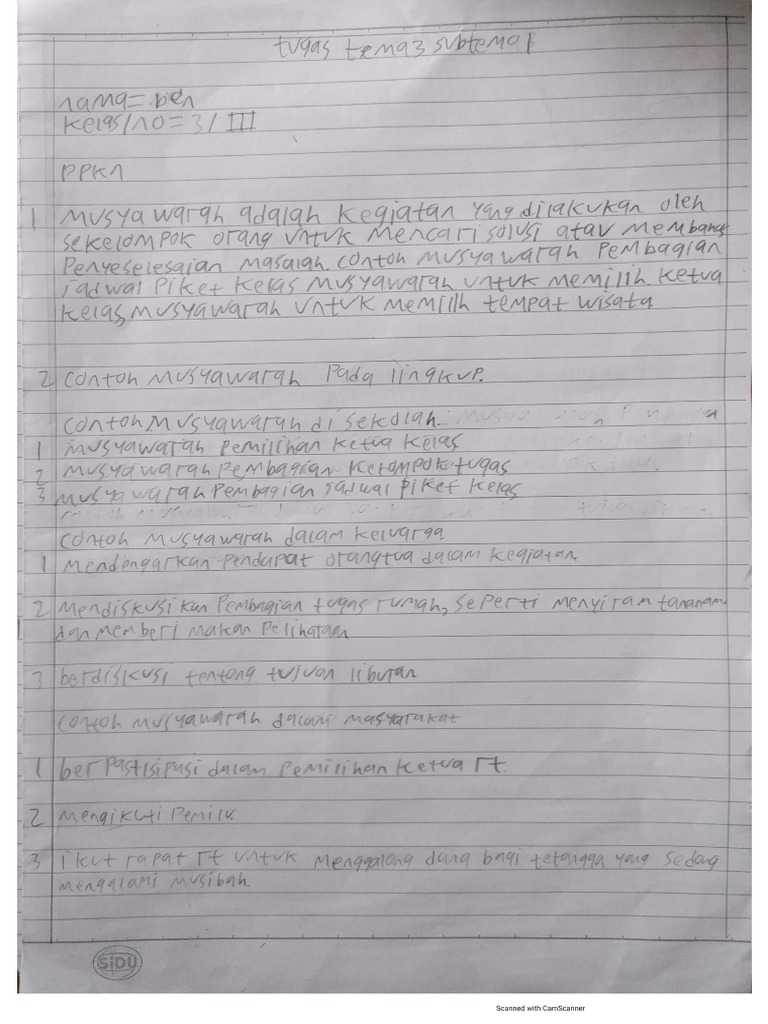 tugas tema3 subtema1
nama=ben
kelas/no=3/III
PPKn
1 Musyawarah adalah kegiatan yang dilakukan oleh
sekelompok orang untuk mencari solusi atau membang
Penyeselesaian masalah. contoh musyawarah pembagian
jadwal piket kelas musyawarah untuk memilih ketua
kelas, musyawarah untuk memilih tempat wisata
2 contoh musyawarah pada lingkup.
contoh musyawarah di sekolah.
1 musyawarah pemilihan ketua kelas
2 musyawarah pembagian kelompok tugas
3 musyawarah pembagian jadwal piket kelas
contoh musyawarah dalam keluarga
1 mendengarkan pendapat orangtua dalam kegiatan.
2 mendiskusikan pembagian tugas rumah, seperti menyiram tananam
dan memberi makan peliharaan
3 berdiskusi tentang tujuan liburan
contoh musyawarah dalam masyarakat
1 berpastisipasi dalam pemilihan ketua rt.
2 mengikuti pemilu.
3 ikut rapat rt untuk menggalang dana bagi tetangga yang sedang
mengalami musibah.
SiDU
Scanned with CamScanner